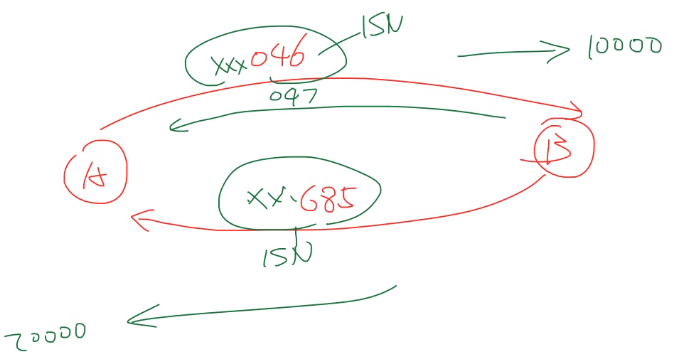 ISN
xxx046
10000
047
A
B
xx.685
ISN
20000